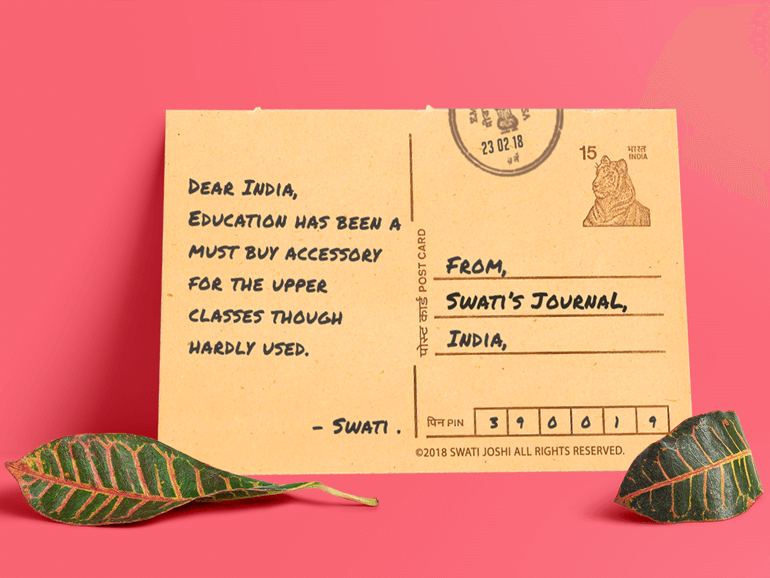 DEAR INDIA,
EDUCATION HAS BEEN A
MUST BUY ACCESSORY
FOR THE UPPER
CLASSES THOUGH
HARDLY USED.
- SWATI .
23 02 18
15 भारत
INDIA
पोस्ट कार्ड POST CARD
FROM,
SWATI'S JOURNAL,
INDIA,
पिन PIN 3 9 0 0 1 9
©2018 SWATI JOSHI ALL RIGHTS RESERVED.